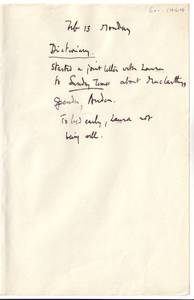 Feb 13 Monday
Dictionary.
Started a joint letter with Laura
to Sunday Times about MacCarthy,
Spender, Auden.
To bed early, Laura not
being well.